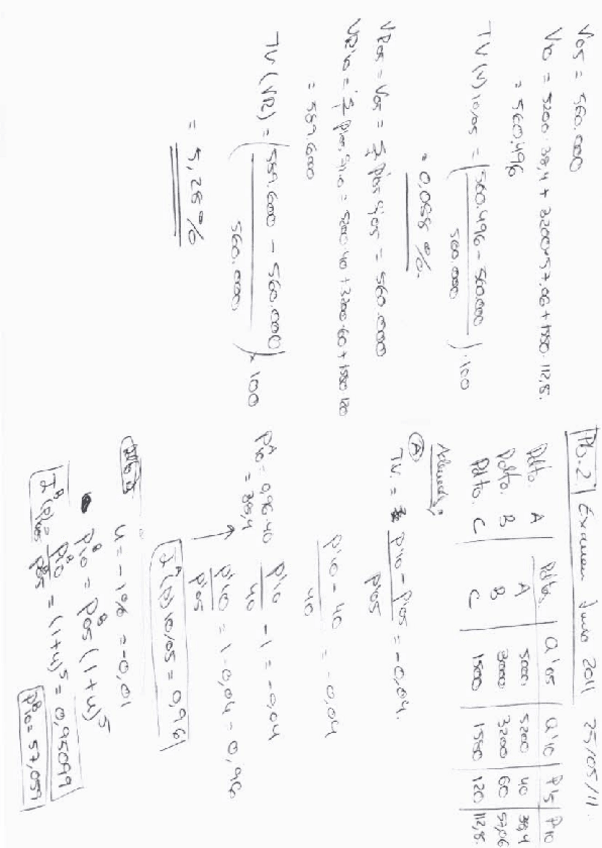 Pb.2 Examen Junio 2011 25/05/11.
Pdtos q'05 q'10 P'15 P'10
Pdto A A 5000 5200 40 38,4
Pdto. B B 3000 3200 60 57,06
Pdto. C C 1500 1550 120 112,8.
Además,
(A)
TV. = P'10 - P'05 / P'05 = -0,04.
P'10 - 40 / 40 = -0,04
P'10 / 40 - 1 = -0,04
P'10 / P'05 = 1 - 0,04 = 0,96
I^A(p)10/05 = 0,96
P^A10 = 0,96·40 = 38,4
u = -1% = -0,01
P^B10 = P^B05 (1+u)^5
I^B(p) = P^B10 / P^B05 = (1+u)^5 = 0,95099
P^B10 = 57,059
V05 = 560.000
V10 = 5200·38,4 + 3200·57,06 + 1550·112,8.
= 560.496
TV (V)10/05 = (560.496 - 560.000 / 560.000)·100
= 0,088 %.
VR05 = V05 = Σ Pi05 qi05 = 560.000
VR10 = Σ Pi05 qi10 = 5200·40 + 3200·60 + 1550·120
= 589.600
TV (VR) = (589.600 - 560.000 / 560.000) × 100
= 5,28 %